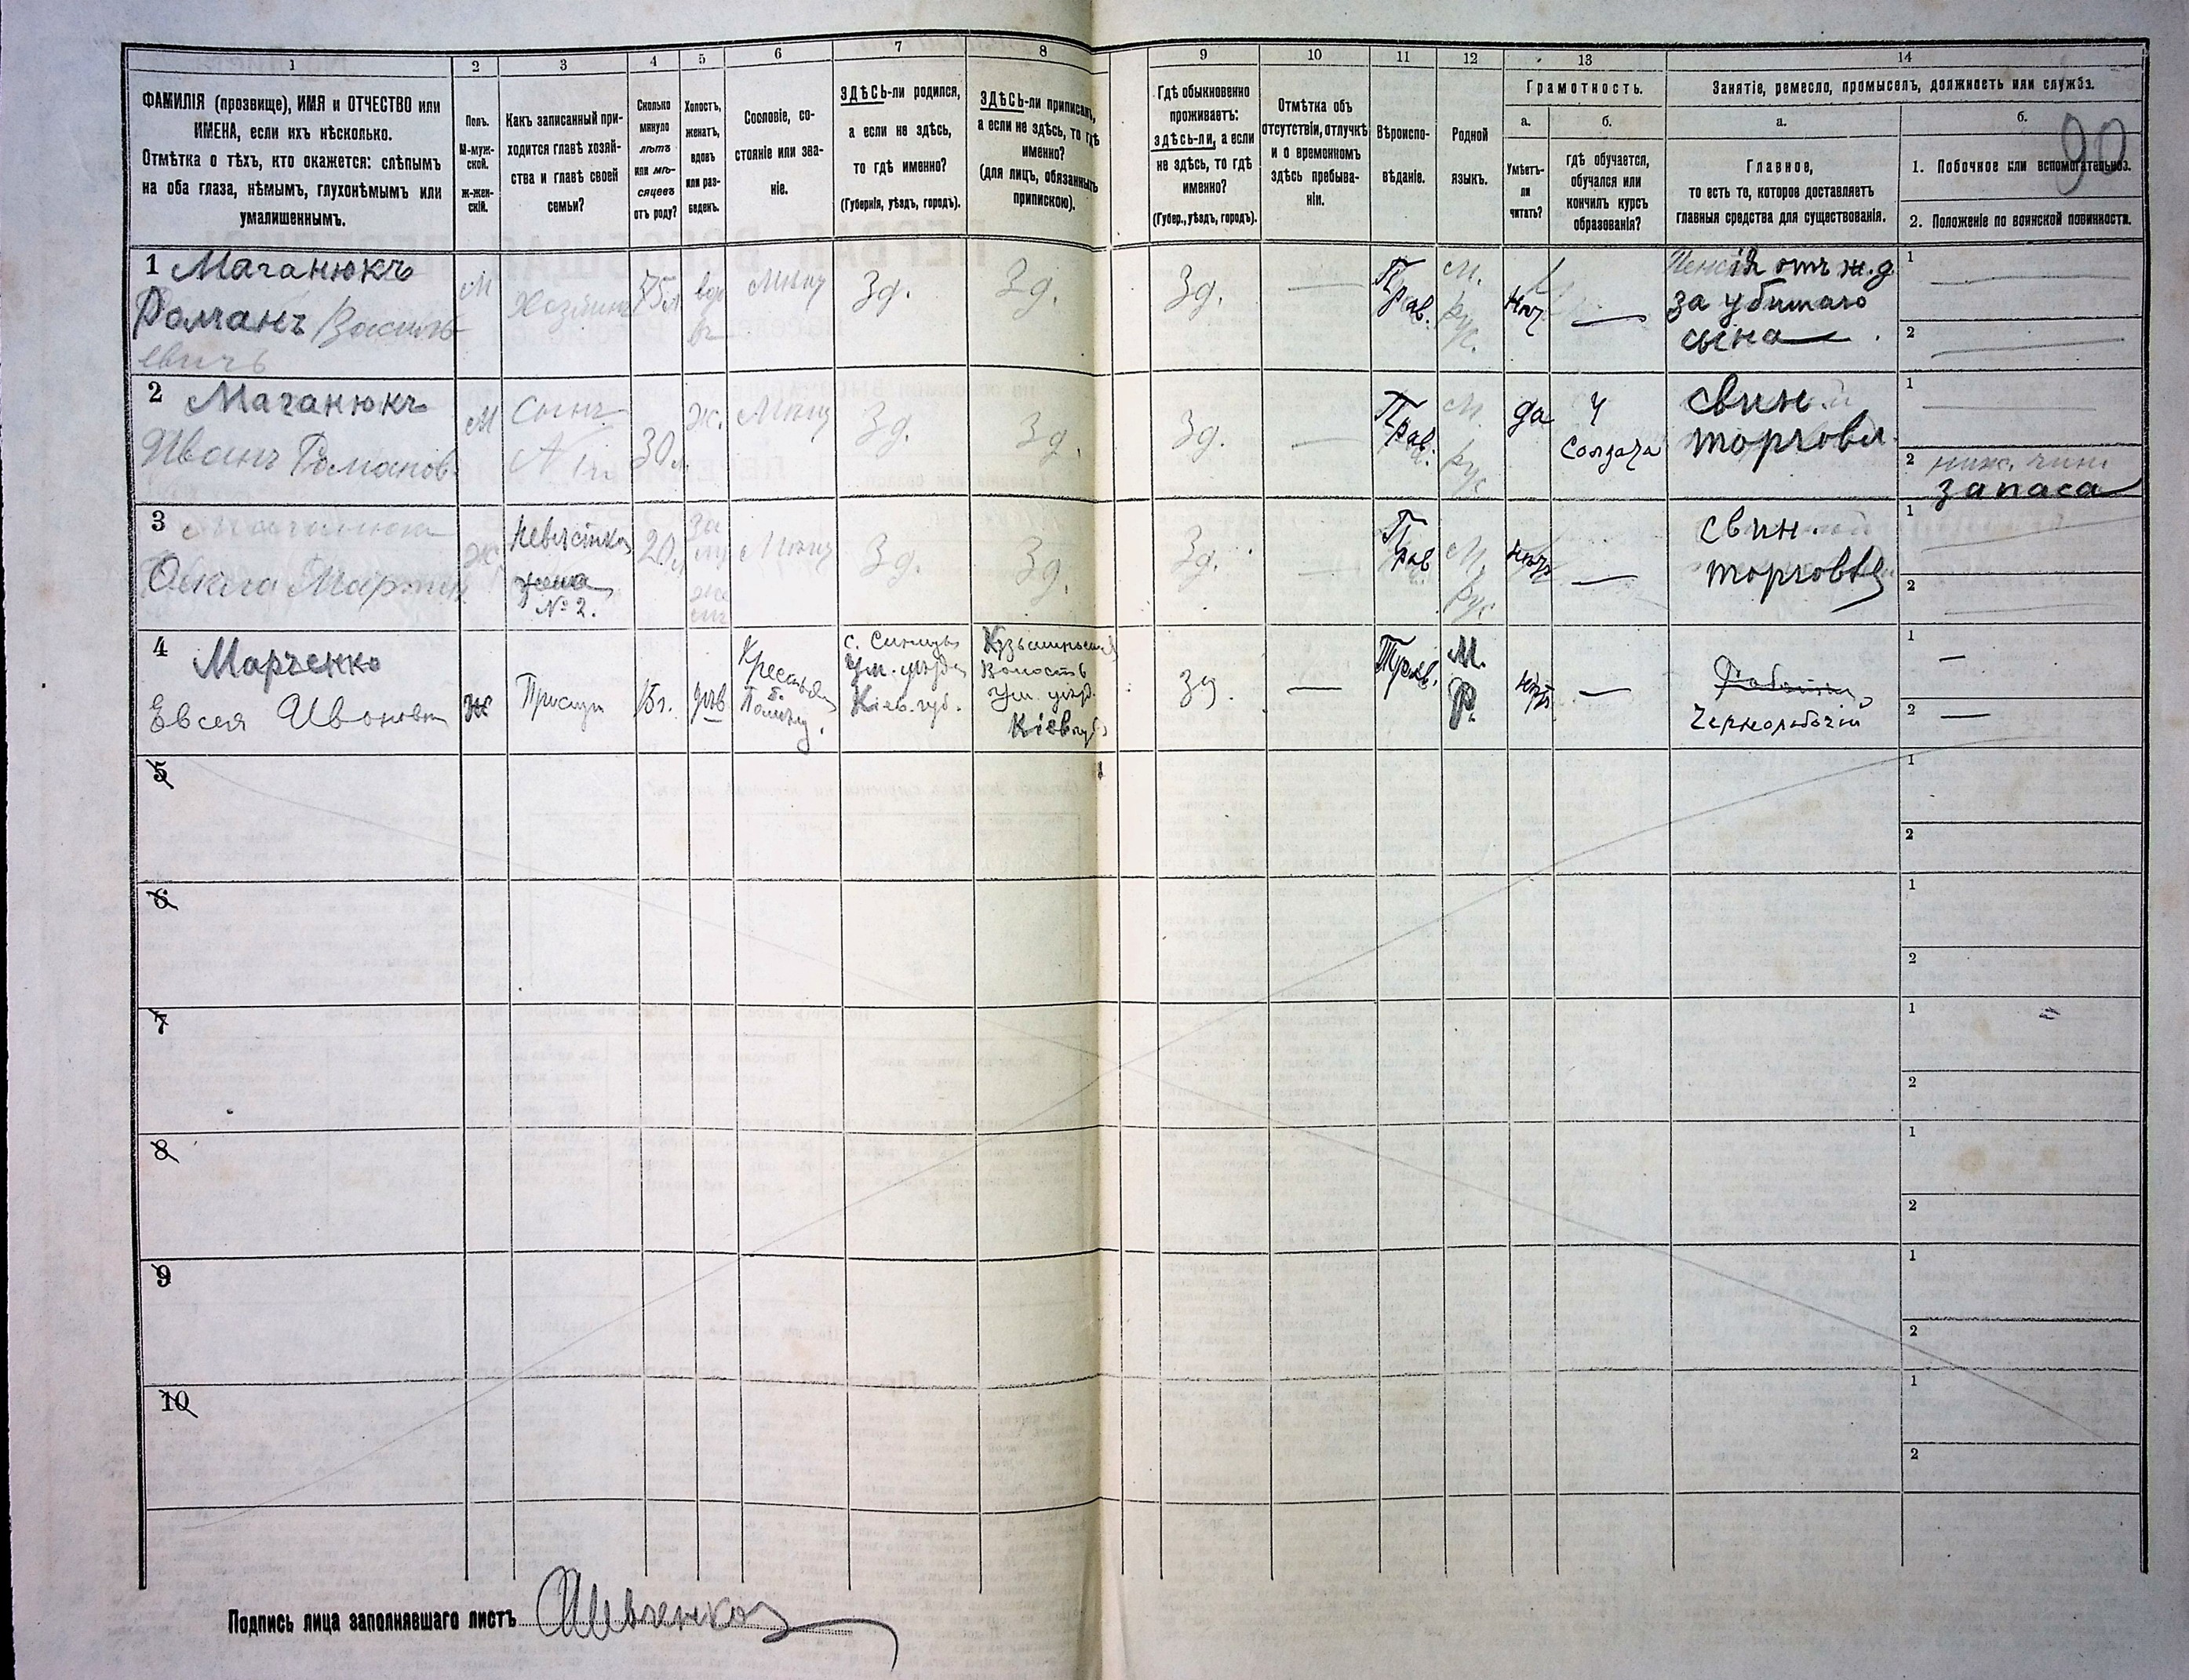 90
1
2
3
4
5
6
7
8
9
10
11
12
13
14
ФАМИЛІЯ (прозвище), ИМЯ и ОТЧЕСТВО или
ИМЕНА, если ихъ нѣсколько.
Отмѣтка о тѣхъ, кто окажется: слѣпымъ
на оба глаза, нѣмымъ, глухонѣмымъ или
умалишеннымъ.
Полъ.
М-муж-
ской.
Ж-жен-
скій.
Какъ записанный при-
ходится главѣ хозяй-
ства и главѣ своей
семьи?
Сколько
минуло
лѣтъ
или мѣ-
сяцевъ
отъ роду?
Холостъ,
женатъ,
вдовъ
или раз-
веденъ.
Сословіе, со-
стояніе или зва-
ніе.
ЗДѢСЬ-ли родился,
а если не здѣсь,
то гдѣ именно?
(Губернія, уѣздъ, городъ).
ЗДѢСЬ-ли приписанъ,
а если не здѣсь, то гдѣ
именно?
(для лицъ, обязанныхъ
припискою).
Гдѣ обыкновенно
проживаетъ:
здѣсь-ли, а если
не здѣсь, то гдѣ
именно?
(Губер., уѣздъ, городъ).
Отмѣтка объ
отсутствіи, отлучкѣ
и о временномъ
здѣсь пребыва-
ніи.
Вѣроиспо-
вѣданіе.
Родной
языкъ.
Грамотность.
а.
Умѣетъ-
ли
читать?
б.
гдѣ обучается,
обучался или
кончилъ курсъ
образованія?
Занятіе, ремесло, промыселъ, должность или служба.
а.
Главное,
то есть то, которое доставляетъ
главныя средства для существованія.
б.
1. Побочное или вспомогательное.
2. Положеніе по воинской повинности.
1 Маганюкъ
Романъ Василь-
евичъ
М
Хозяинъ
75 л
Мѣщ
Зд.
Зд.
Зд.
—
Прав.
М.
рус.
нѣт
—
Пенсія отъ ж.д
за убитаго
сына
1 —
2 —
2 Маганюкъ
Иванъ Романов.
М
Сынъ
№ 1го
30 л.
Ж.
Мѣщ
Зд.
Зд.
Зд.
—
Прав.
М.
рус
да
У
Солдата
свин.
торговл.
1 —
2 ниж. чин.
запаса
3
Ольга Мартын.
Ж
Невѣстка
жена
№ 2.
20 л
Мѣщ
Зд.
Зд.
Зд.
—
Прав
М.
рус
нѣт
—
свин.
торговля
1 —
2 —
4 Марченко
Евсея Ивановна
Ж
Прислуга
15 г.
дѣв
Крестьян
б.
Помѣщ.
с.
Ум. уѣзда
Кіев. губ.
Волость
Ум. уѣзд.
Кіев губ
Зд.
—
Прав.
М.
Р.
нѣт
—
Чернорабочій
1 —
2 —
5
1
2
6
1
2
7
1
2
8
1
2
9
1
2
10
1
2
Подпись лица заполнявшаго листъ